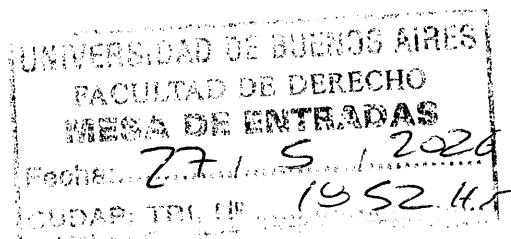 UNIVERSIDAD DE BUENOS AIRES
FACULTAD DE DERECHO
MESA DE ENTRADAS
Fecha: 27 / 5 / 2026
CUDAP: TRI. 1952 Hs